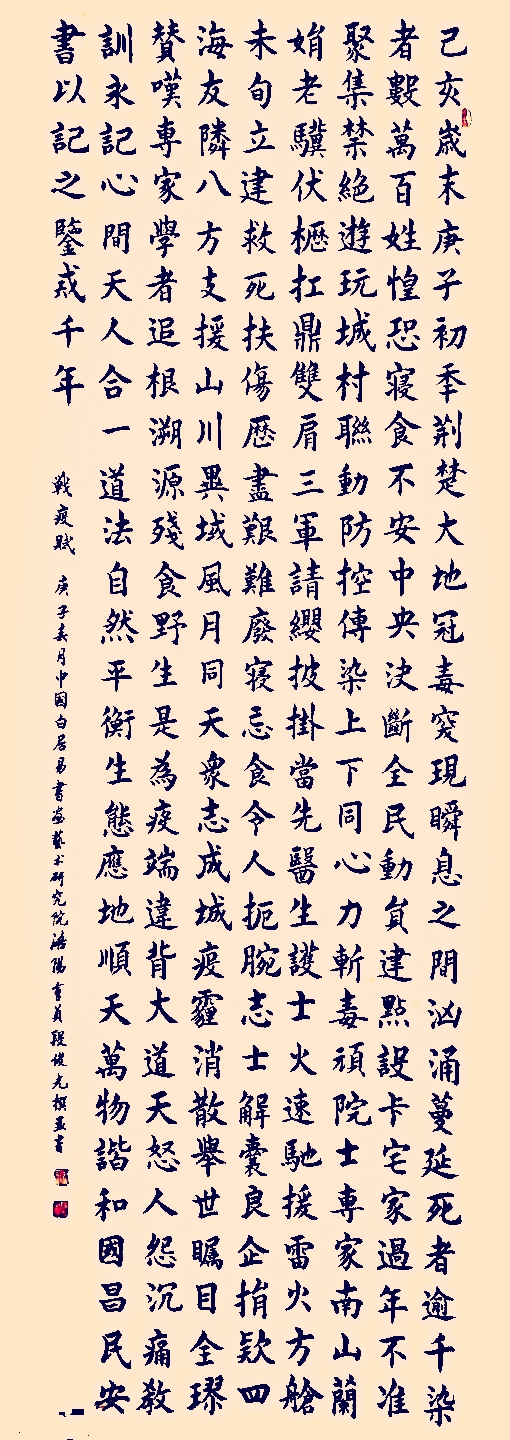 己亥歲末庚子初季荆楚大地冠毒突現瞬息之間汹涌蔓延死者逾千染
者數萬百姓惶恐寝食不安中央決斷全民動員建點設卡宅家過年不准
聚集禁絕遊玩城村聯動防控傳染上下同心力斬毒頑院士專家南山蘭
娟老驥伏櫪扛鼎雙肩三軍請纓披掛當先醫生護士火速馳援雷火方艙
未旬立建救死扶傷歷盡艱難廢寝忘食令人扼腕志士解囊良企捐款四
海友隣八方支援山川異域風月同天衆志成城疫霾消散舉世矚目全球
贊嘆專家學者追根溯源殘食野生是為疫端違背大道天怒人怨沉痛教
訓永記心間天人合一道法自然平衡生態應地順天萬物諧和國昌民安
書以記之鑒戒千年
戰疫賦 庚子春月中国白居易書畫藝术研究院洛陽會員段俊光撰並書